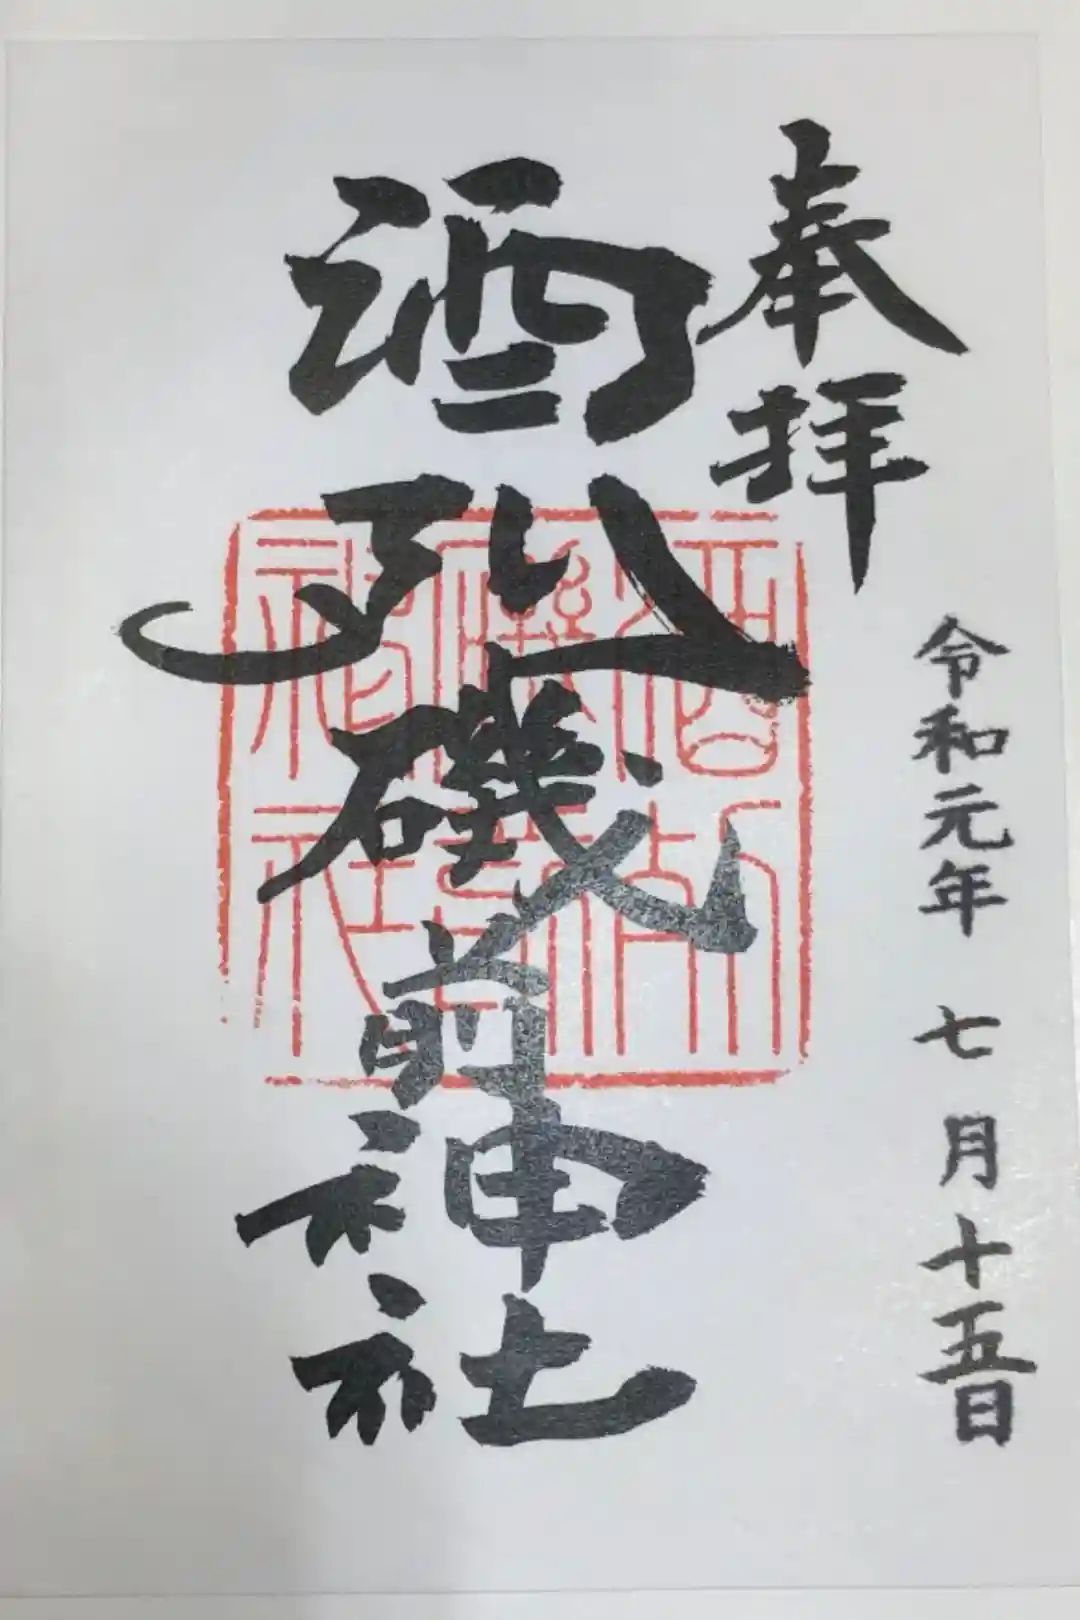 奉拝
令和元年 七月十五日
酒列磯前神社
酒列
磯前
神社